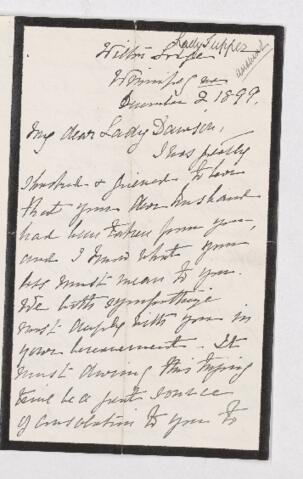 Lady Tupper
answered
Winnipeg Man
December 2 1899.
My dear Lady Dawson,
I was greatly
shocked & grieved to learn
that your dear husband
had been taken from you,
and I know what your
loss must mean to you.
We both sympathize
most deeply with you in
your bereavement. It
must during this trying
time be a great source
of consolation to you to